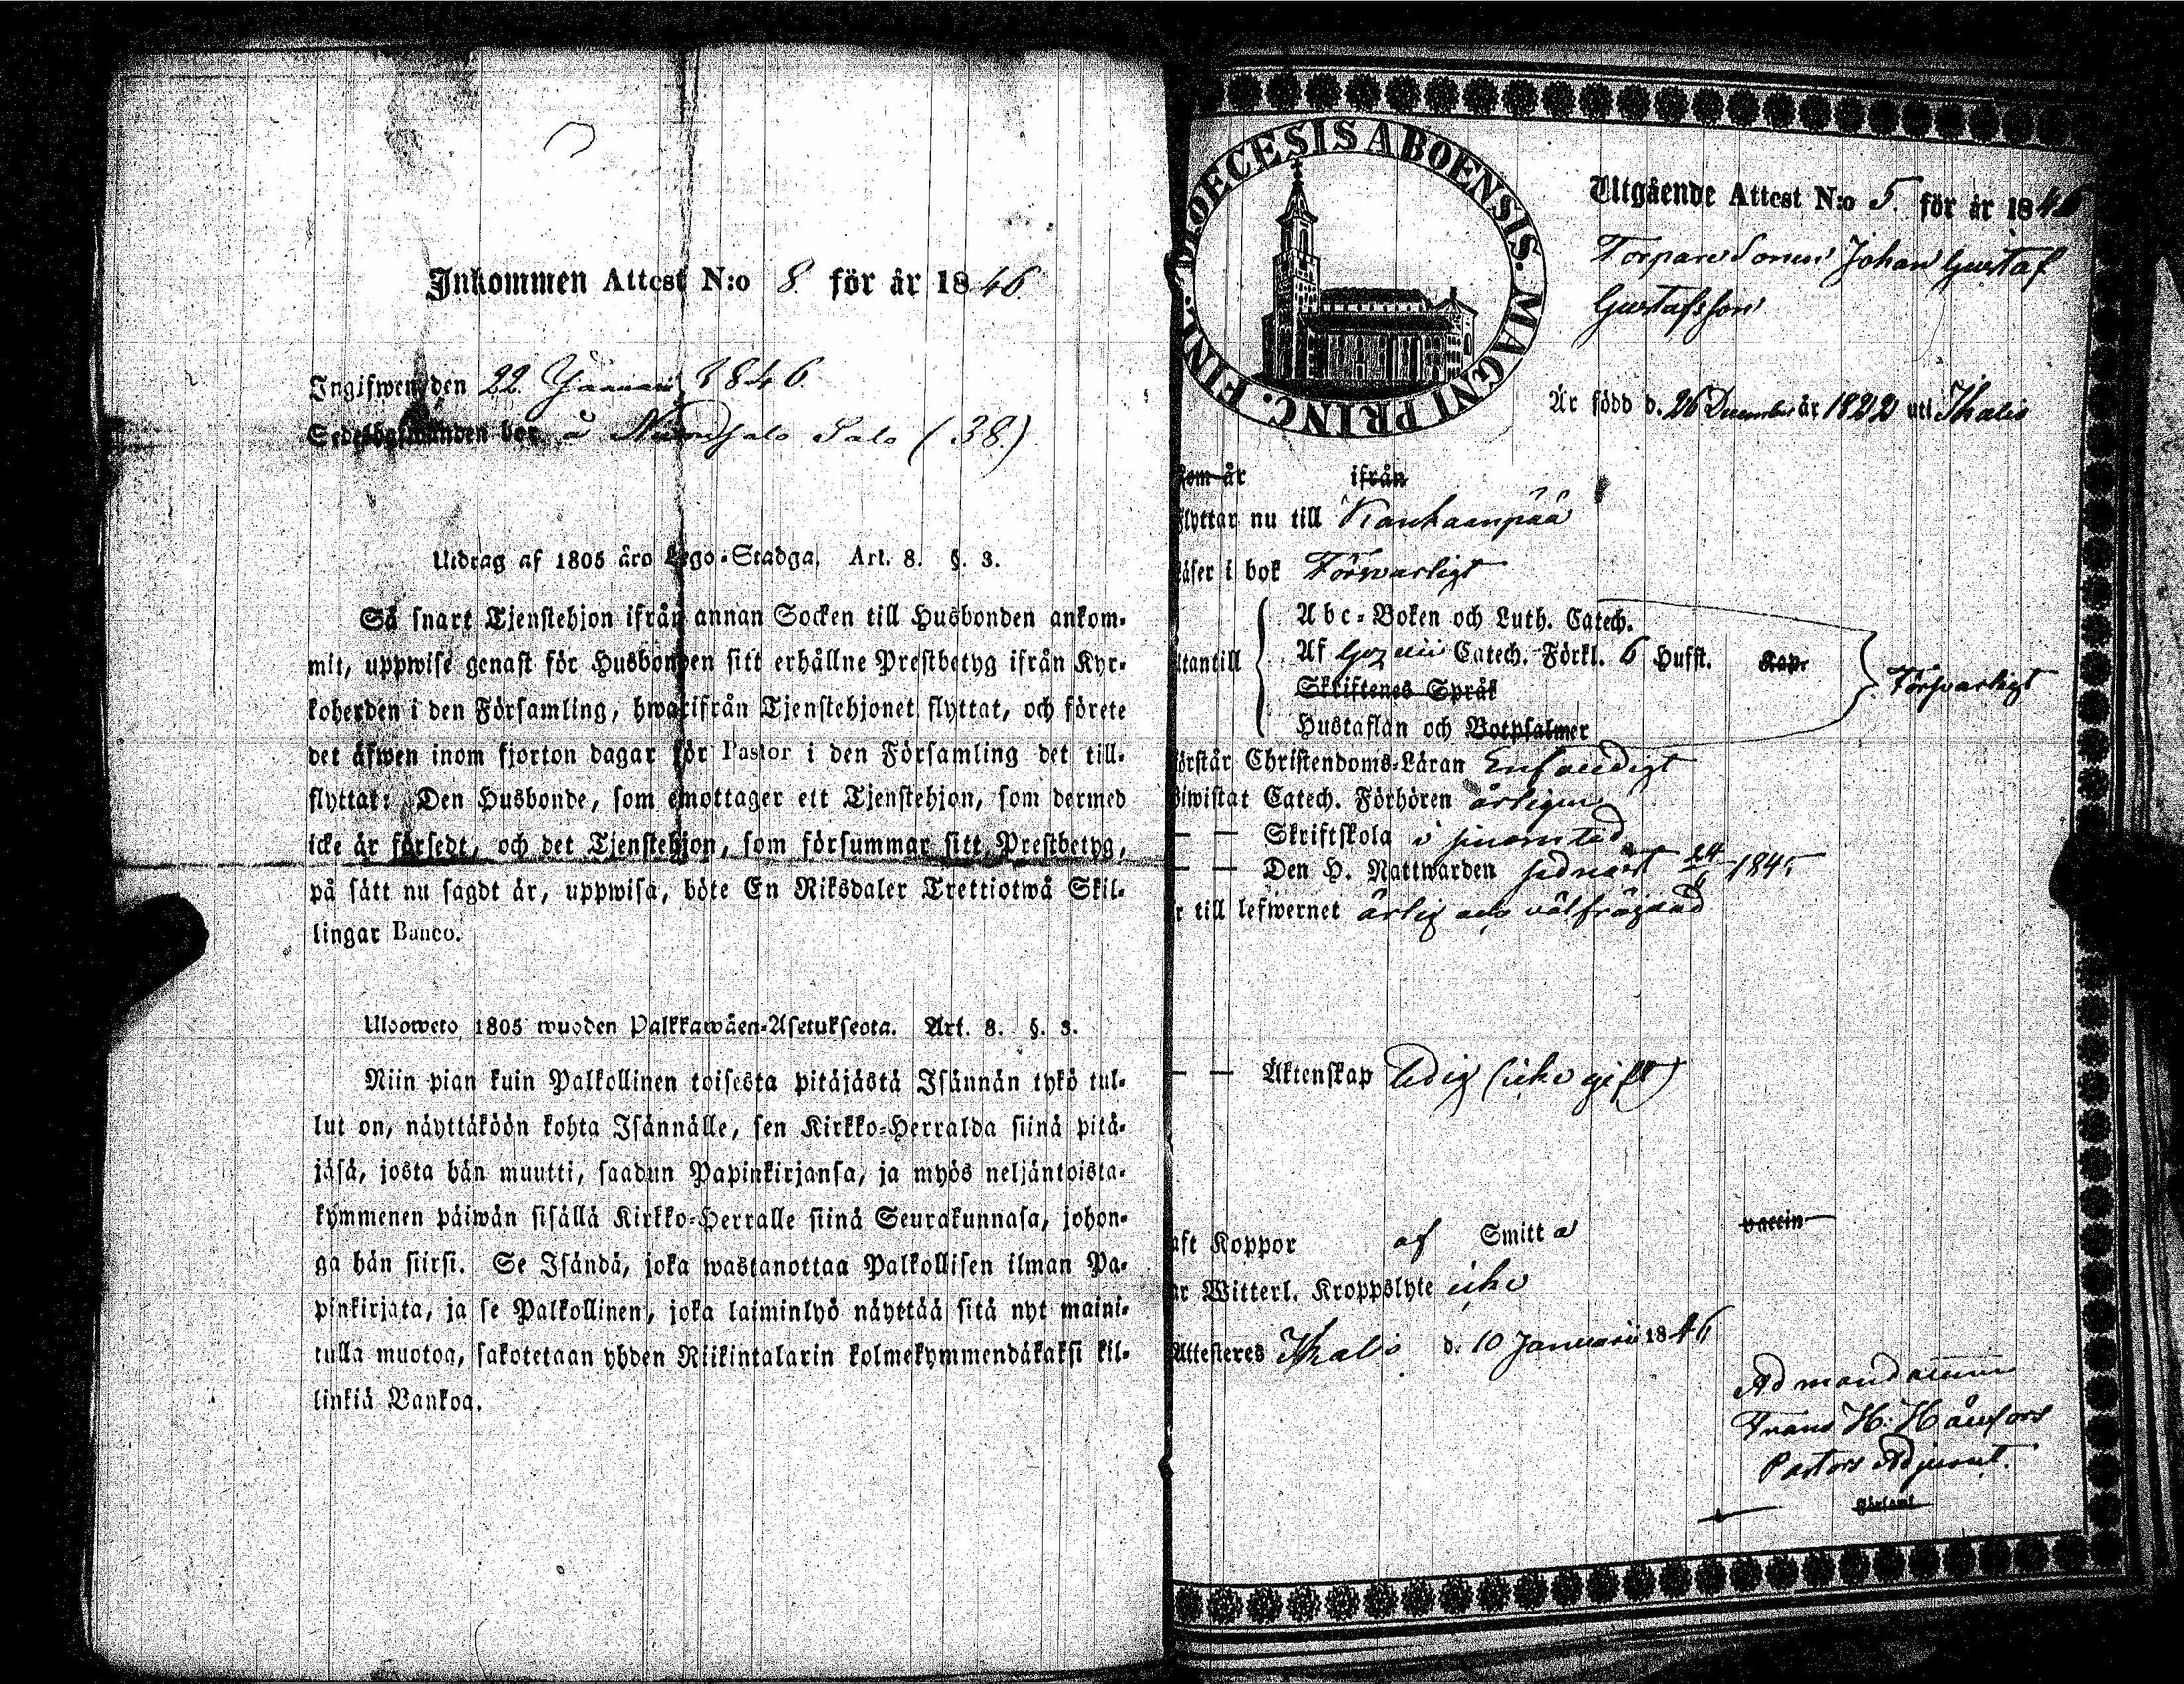 Inkommen Attest N:o 8. för år 1846.
Ingifwen den 22 Januari 1846
bor å Salo (38.)
Utdrag af 1805 års Lego-Stadga, Art. 8. §. 3.
Så snart Tjenstehjon ifrån annan Socken till Husbonden ankom-
mit, uppwise genast för Husbonden sitt erhållne Prestbetyg ifrån Kyr-
koherden i den Församling, hwarifrån Tjenstehjonet flyttat, och förete
det äfwen inom fjorton dagar för Pastor i den Församling det till-
flyttat: Den Husbonde, som emottager ett Tjenstehjon, som dermed
icke är försedt, och det Tjenstehjon, som försummar sitt Prestbetyg,
på sätt nu sagdt är, uppwisa, böte En Riksdaler Trettiotwå Skil-
lingar Banco.
Ulosweto 1805 wuoden Palkkawäen-Asetuksesta. Art. 8. §. 3.
Niin pian kuin Palkollinen toisesta pitäjästä Isännän tykö tul-
lut on, näyttäköön kohta Isännälle, sen Kirkko-Herralda siinä pitä-
jäsä, josta hän muutti, saadun Papinkirjansa, ja myös neljäntoista-
kymmenen päiwän sisällä Kirkko-Herralle siinä Seurakunnasa, johon-
ga hän siirsi. Se Isändä, joka wastanottaa Palkollisen ilman Pa-
pinkirjata, ja se Palkollinen, joka laiminlyö näyttää sitä nyt maini-
tulla muotoa, sakotetaan yhden Riikintalarin kolmekymmendäkaksi kil-
linkiä Bankoa.
DIOECESIS ABOENSIS. MAGNI PRINC. FINL.
Utgående Attest N:o 5. för år 1846
Torpare Sonen Johan Gustaf
Gustafsson
Är född d. 26 December år 1822 uti Ithalis
kom år ifrån
flyttar nu till Kankaanpää
läser i bok Förswarligt
utantill
Abc-Boken och Luth. Catech.
Af Catech. Förkl. 6 Hufst. Kap.
Skriftenes Språk
Hustaflan och Botpsalmer
Försvarligt
förstår Christendoms-Läran Enfaldigt
biwistat Catech. Förhören årligen
— — Skriftskola i sinom tid
— — Den H. Nattwarden sednast 1845
är till lefwernet ärlig och välfräjdad
— — Äktenskap ledig (icke gift)
haft Koppor af Smitta vaccin
har Witterl. Kroppslyte icke
Attesteras Ithalis d. 10 Januarii 1846
Ad mandatum
Frans H. Hånfors
Pastors Adjunct.